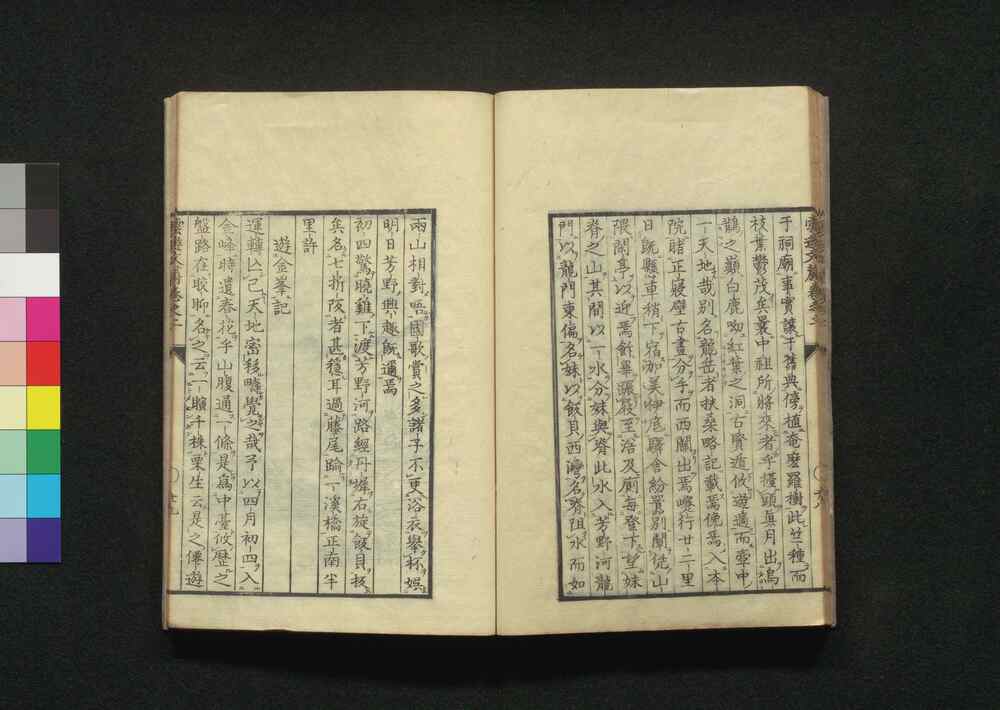 于祠廟事實讓于舊典傍植菴麼羅樹此竺種而
枝葉鬱茂矣曩中祖所將來者乎擡頭真月出
鵲之巔白鹿呦紅葉之洞古齊遁攸逍遙而壺中
一天地哉別名龍岳者扶桑略記載焉俛焉入本
院睹正寢壁古畫分手而西關出焉噬行廿二里
日既懸車稍下宿加美伊尼驛舍紛囂別開一山
隈閑亭以近焉飦畢躧履至浴及廁每登下望妹
脊之山其間以一水分妹與脊此水入芳野河龍
門以龍門東偏名妹以飯貝西灣名脊阻水而如
兩山相對唔國歌賞之多諸子不更浴衣舉杯娛
明日芳野興趣既邇焉
初四驚曉雞下渡芳野河路經丹墀右旋飯貝坂
矣名七折阪者甚穩耳過藤尾踰一溪橋正南半
里許
遊金峯記
運轉亡已天地密移疇覺之哉予以四月初四入
金峰時遺春花乎山腹通一條是爲中臺攸歷之
盤路在眼聊名之云一曠千株栗生云是之僊遊